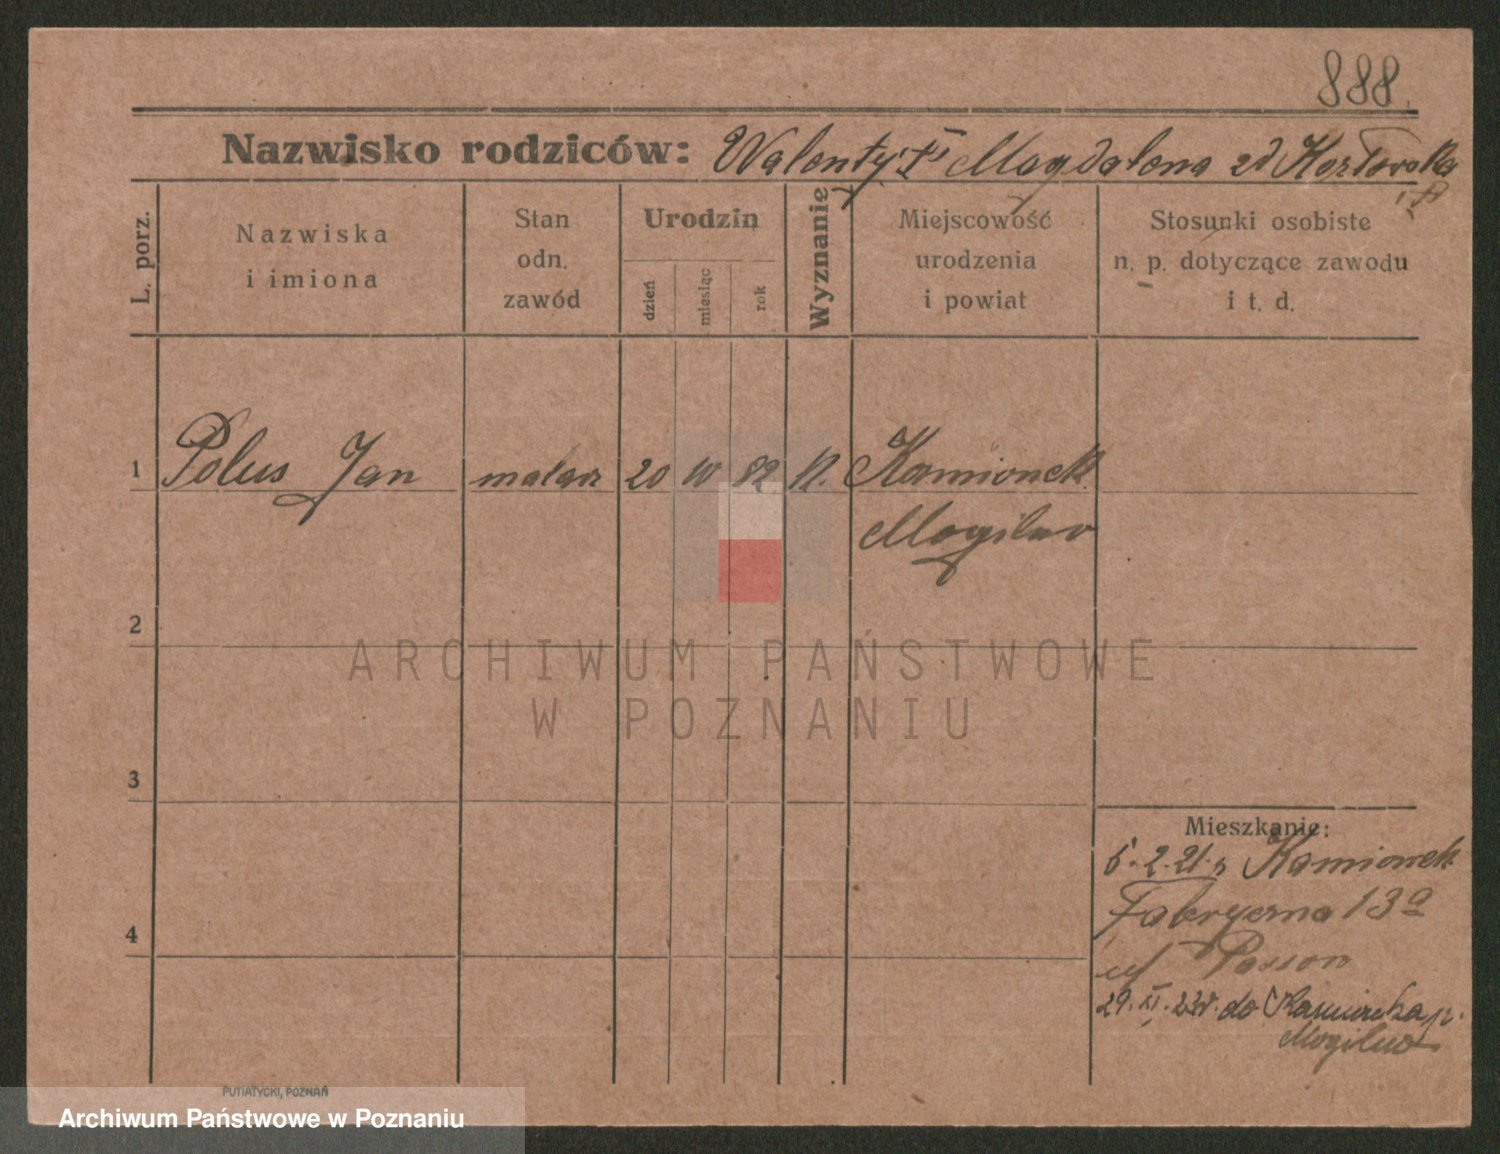 888.
Nazwisko rodziców: Walenty i Magdalena zd Kozłowska
L. porz.
Nazwiska
i imiona
Stan
odn.
zawód
Urodzin
dzień
miesiąc
rok
Wyznanie
Miejscowość
urodzenia
i powiat
Stosunki osobiste
n. p. dotyczące zawodu
i t. d.
1 Polus Jan malarz 20 10 82 k. Kamionek
Mogilno
2
ARCHIWUM PAŃSTWOWE
W POZNANIU
3
Mieszkanie:
5.2.21. z Kamionek
4 Fabryczna 13a
29.XI.23r. do Kamionka p.
Mogilno
PUTIATYCKI, POZNAŃ
Archiwum Państwowe w Poznaniu